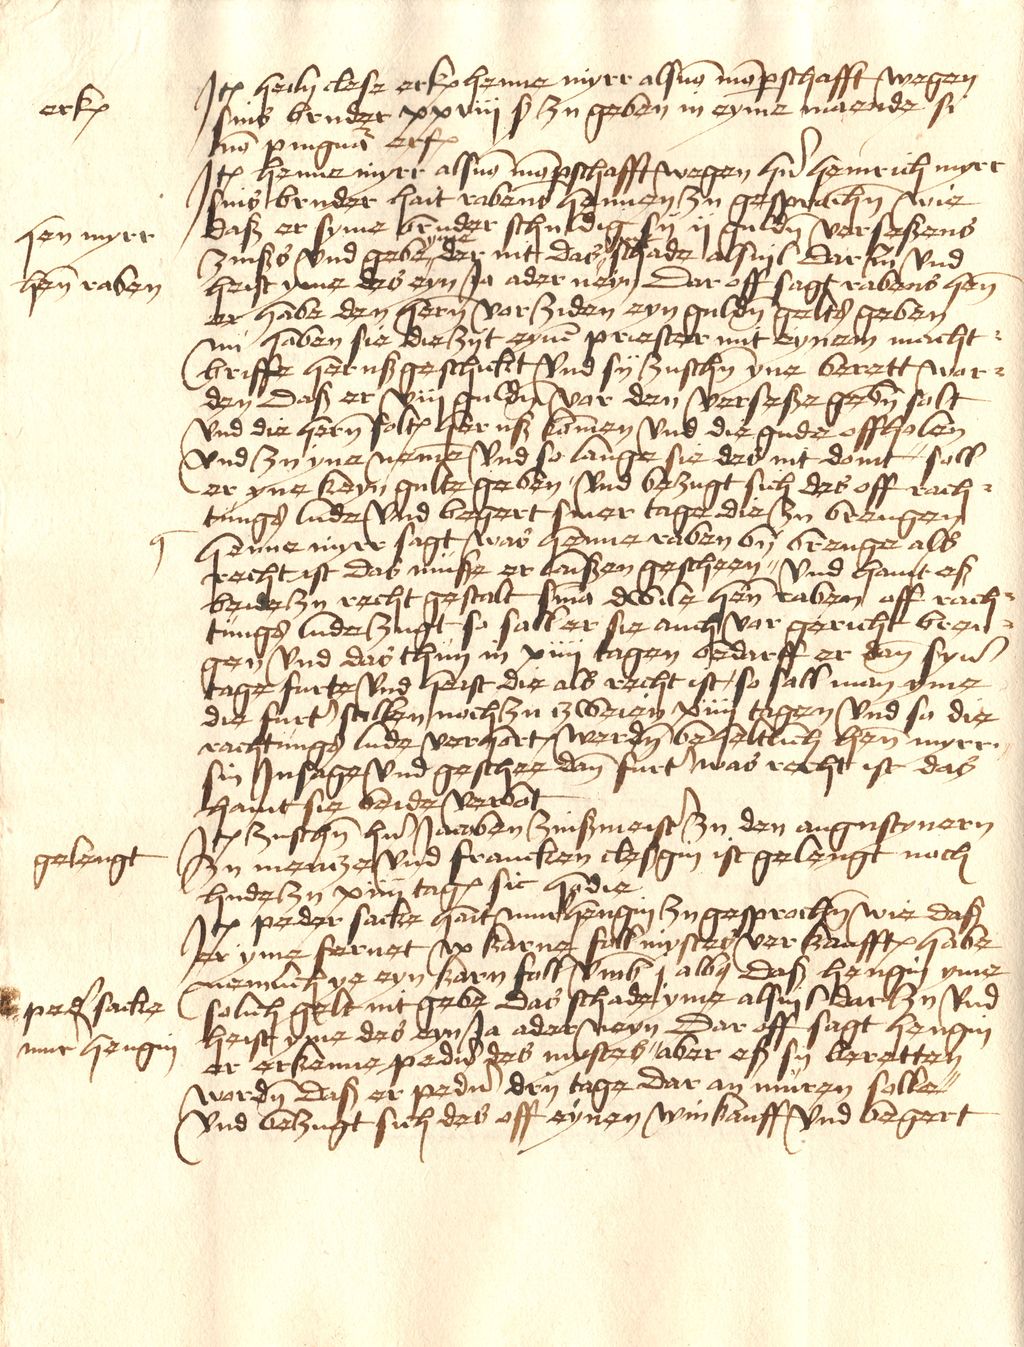 erk
Jt heiln clese erk henne myrr als vō mōpschafft wegen
sins bruder xxviii ß zu geben in eyme maende si
nō pingnā erf
Jt henne myrr als vō mōpschafft wegen hr̄ heinrich myrr
sins bruder hait rabens hennen zu gesprochn̄ wie
hen myrr
daß er syme bruder schuldig sij ij guldn̄ verseßens
zinßs vnd gebe yme der nit das schade alsuil dar zu vnd
hen̄ raben
heist yme des eyn Ja ader neyn Dar off sagt rabens hen̄
er habe den hern̄ vor ziden eyn guldn̄ gelts geben
nu haben sie die zijt eynē priester mit eynem macht-
briffe her uß geschickt vnd sij zuschn̄ yne berett wor-
den Daß er viii guldn̄ vor den verseße gebn̄ solt
vnd die hern̄ solt her uß komen vnd die gude off holen
vnd zu yne neme vnd so lange sie des nit doint soll
er yne keyn gulte geben vnd bezugt sich des off rach-
tungs lude vnd begert siner tage die zu brengen
henne myrr sagt was henne raben bij brenge als
recht ist das muße er laißen gescheen vnd haint eß
beide zu recht gestalt sm̄a dwile hen̄ raben off rach-
tungs lude zugt so sall er sie auch vor gericht bren-
gen vnd das thun in xiiii tagen bedarff er dan̄ syn̄
tage furte vnd heist die als recht ist so sall man yme
die furt stillen noch zu zweien xiiii tagen vnd so die
rachtungs lude verhort werdn̄ beheltlich hen̄ myrr
sin Jnsage vnd geschee dan̄ furt was recht ist das
haint sie beide verbot
Jt zuschn̄ hr̄ Jacoben zinßmeistr̄ zu den augustynern
gelengt
zu mentze vnd francken clesgin ist gelengt noch
hude zu xiiii tag sic hodie
Jt peder sacke hait mur hengin zu gesprochn̄ wie daß
er yme fernet x karne foll mystes verkaufft habe
nemlich ye eyn karn foll vmb j alb9 daß hengin yme
pedr̄ sacke
solich gelt nit gebe das schade yme alsuil dar zu vnd
mur hengin
heist yme des eyn Ja ader neyn Dar off sagt hengin
er erkenne pedr̄ des mystes aber eß sij beretten
wordn̄ Daß er pedr̄ drij tage dar an muren solle
vnd bezugt sich des off eynen winkauff vnd begert